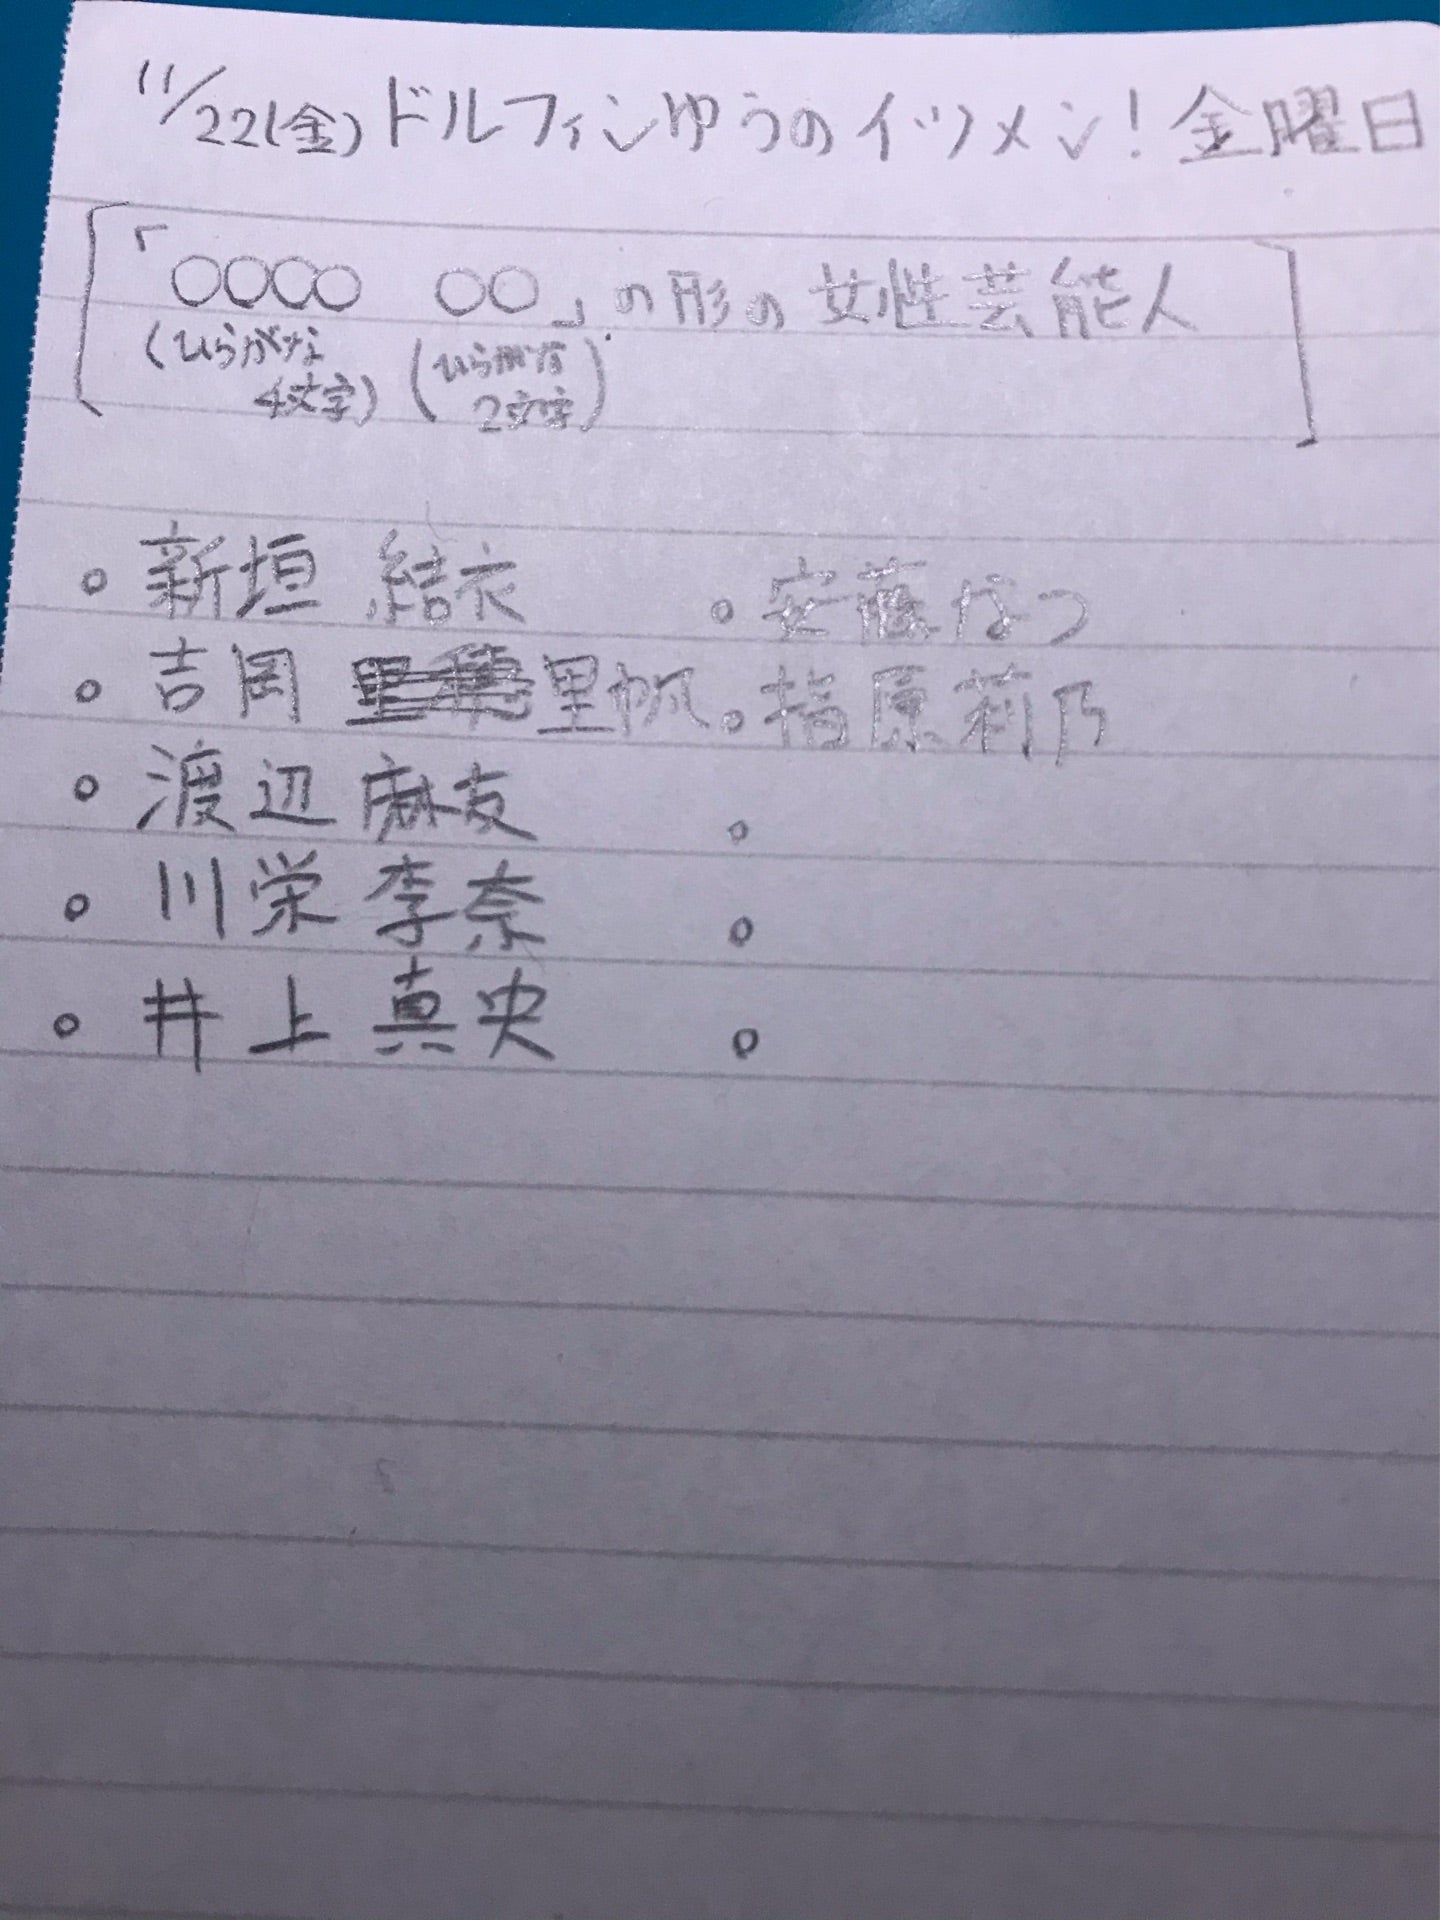 11/22(金)ドルフィンゆうのイツメン!金曜日
「〇〇〇〇 〇〇」の形の女性芸能人
(ひらがな4文字) (ひらがな2文字)
。新垣 結衣
。吉岡 里帆
。渡辺 麻友
。川栄 李奈
。井上 真央
。安藤なつ
。指原莉乃
。
。
。